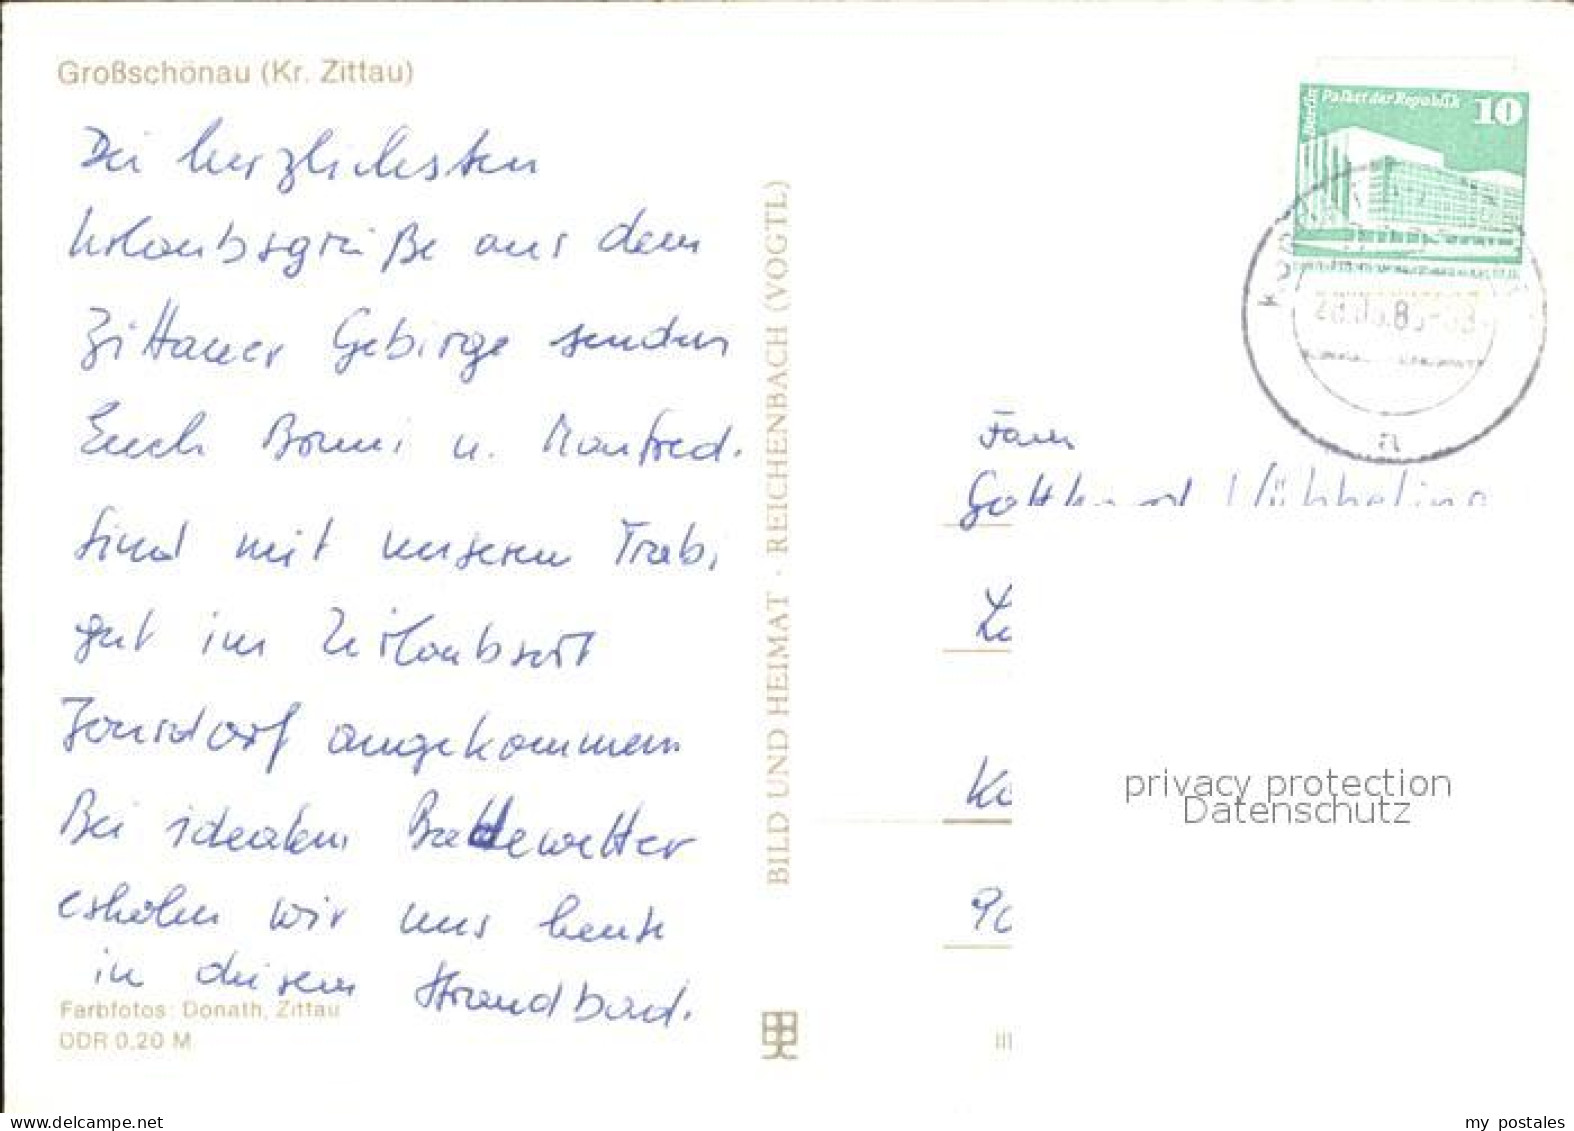 Großschönau (Kr. Zittau)
Die herzlichsten
Urlaubsgrüße aus dem
Zittauer Gebirge senden
Euch Bruni u. Manfred.
Sind mit unserem Trabi
gut im Urlaubsort
Jonsdorf angekommen
Bei idealem Badewetter
erholen wir uns heute
in diesem Strandbad.
Farbfotos: Donath, Zittau
DDR 0,20 M
BILD UND HEIMAT · REICHENBACH (VOGTL)
Berlin
Palast der Republik 10
Fam
Gotthard
privacy protection
Datenschutz
www.delcampe.net
my postales